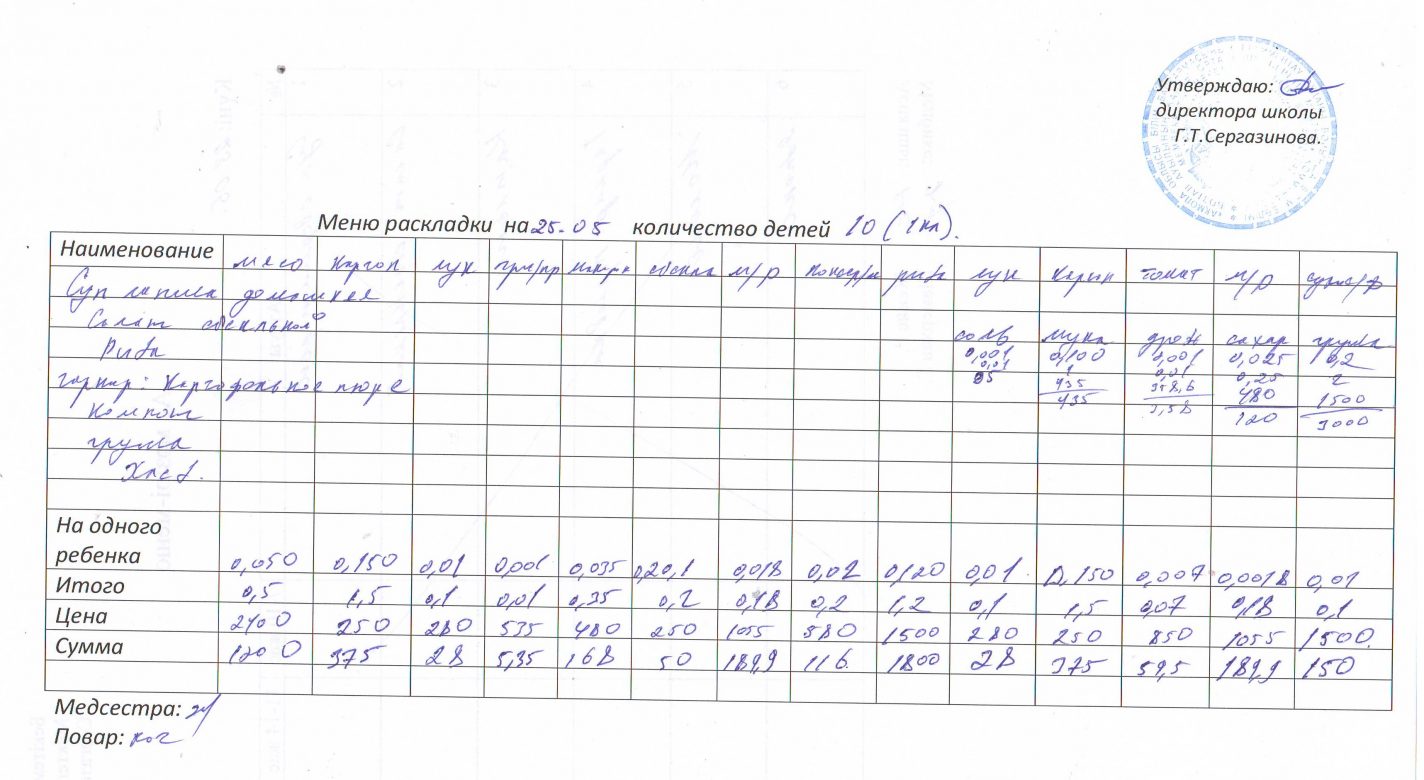 Утверждаю:
директора школы
Г.Т.Сергазинова.
Меню раскладки на 25.05 количество детей 10 (1кл).
Наименование мясо картоп лук грн/пр макарн свекла м/р консер/н рыба лук картоп томат м/р сухоф/ф
Суп лапша домашняя
Салат свекльной соль мука дрож сахар груша
Рыба 0,001 0,100 0,001 0,025 0,2
0,01 1 0,01 0,25 2
гарнир: Картофельное пюре 85 435 358,6 480 1500
Компот 435 3,58 120 3000
груша
Хлеб.
На одного
ребенка 0,050 0,150 0,01 0,001 0,035 0,020,1 0,018 0,02 0,120 0,01 0,150 0,007 0,0018 0,01
Итого 0,5 1,5 0,1 0,01 0,35 0,2 0,18 0,2 1,2 0,1 1,5 0,07 0,18 0,1
Цена 2400 250 280 535 480 250 1055 580 1500 280 250 850 1055 1500.
Сумма 1200 375 28 5,35 168 50 189,9 116 1800 28 375 59,5 189,9 150
Медсестра:
Повар: